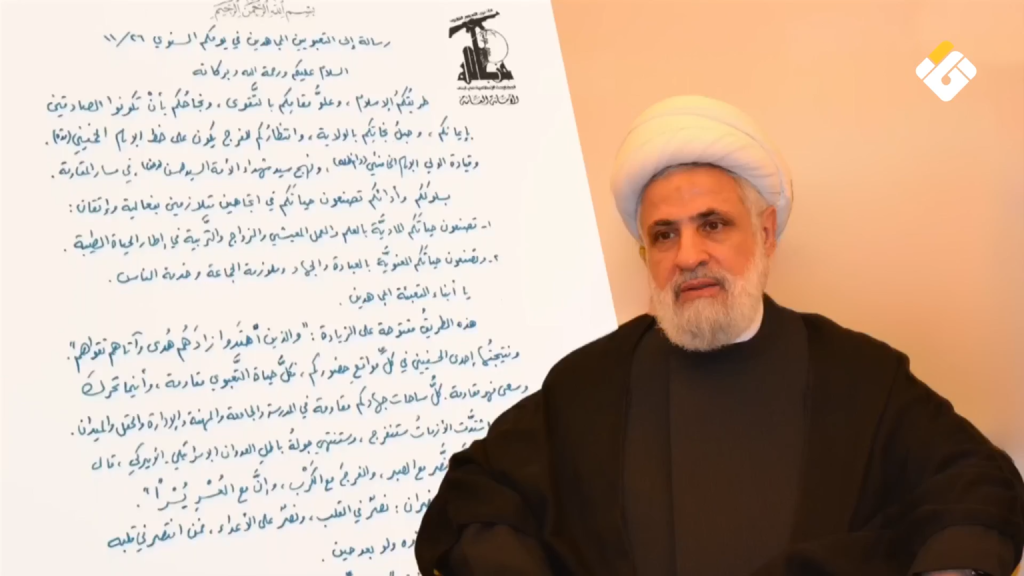 بسم الله الرحمن الرحيم
رسالة إلى التعبويين المجاهدين في يومكم السنوي ١١/٢٦
السلام عليكم ورحمة الله وبركاته
طريقتكم الإسلام، وعلوُّ مقامكم بالتَّقوى، ونجاتُكم بأنْ تكونوا الصادقين
بإيمانكم، وحبلُ نجاتكم بالولاية، وانتظارُكم للفرج يكون على خط الإمام الخميني (قده)
وقيادة الولي الإمام الخامنئي (دام ظله)، ونهج سيد شهداء الأمة السيد حسن نصر الله، في مسار المقاومة.
بسلوككم وأدائكم تصنعون حياتكم في اتجاهين متلازمين بفعالية وإتقان:
١- تصنعون حياتكم الماديَّة بالعلم والعمل المعيشي والزواج والتَّربية في إطار الحياة الطيبة.
٢- وتصنعون حياتكم المعنويَّة بالعبادة والجهاد وملازمة الجماعة وخدمة الناس.
يا أبناء التعبئة المجاهدين.
هذه الطريقُ مفتوحة على الزيادة: "والذين اهتَدَوا زادَهُم هُدى وآتاهم تقواهم".
ونتيجتُها إحدى الحسنيين في كلِّ مواقع حضوركم، فكلُّ حياة التَّعبوي مقاومة، وأينما تحرك
وسعى فهو مقاومة. كلُّ ساحات جهادكم مقاومة في المدرسة والجامعة والمهنة والإدارة والحقل والميدان.
اشتدَّت الأزماتُ ستنفرج، وستنتهي جولةُ باطل العدوان الإسرائيلي الأميركي، قال
مع الصبر، والفرجَ مع الكَرْب، وإنَّ مع العُسْرِ يُسْراً".
نصرٌ في القلب، ونصرٌ على الأعداء، فمن انتصر في قلبه
ولو بعد حين.